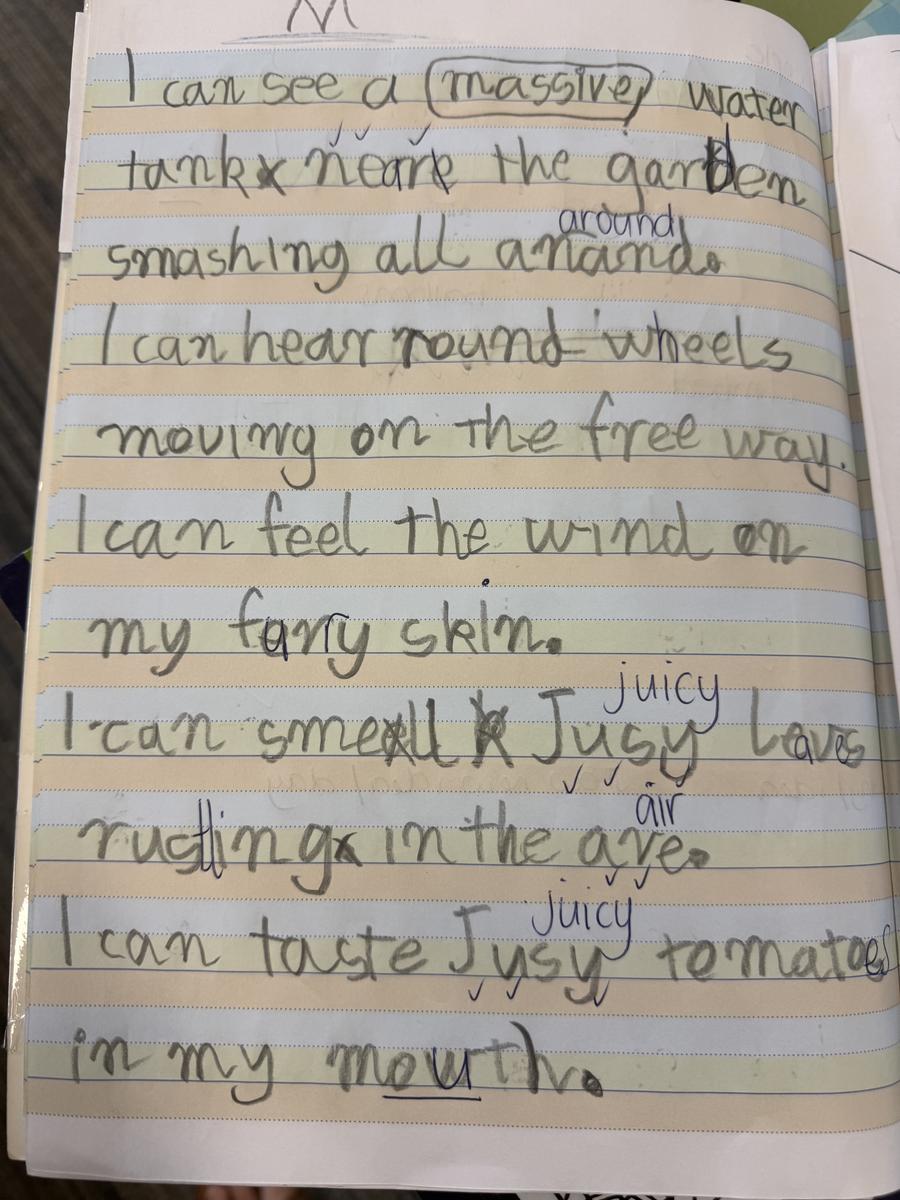 M
I can see a massive water
tank near the garden
around
smashing all anand.
I can hear round wheels
moving on the free way.
I can feel the wind on
my furry skin.
juicy
I can smell Jusy Leaves
air
rustling in the aye.
juicy
I can taste Jysy tomatoes
in my mouth.